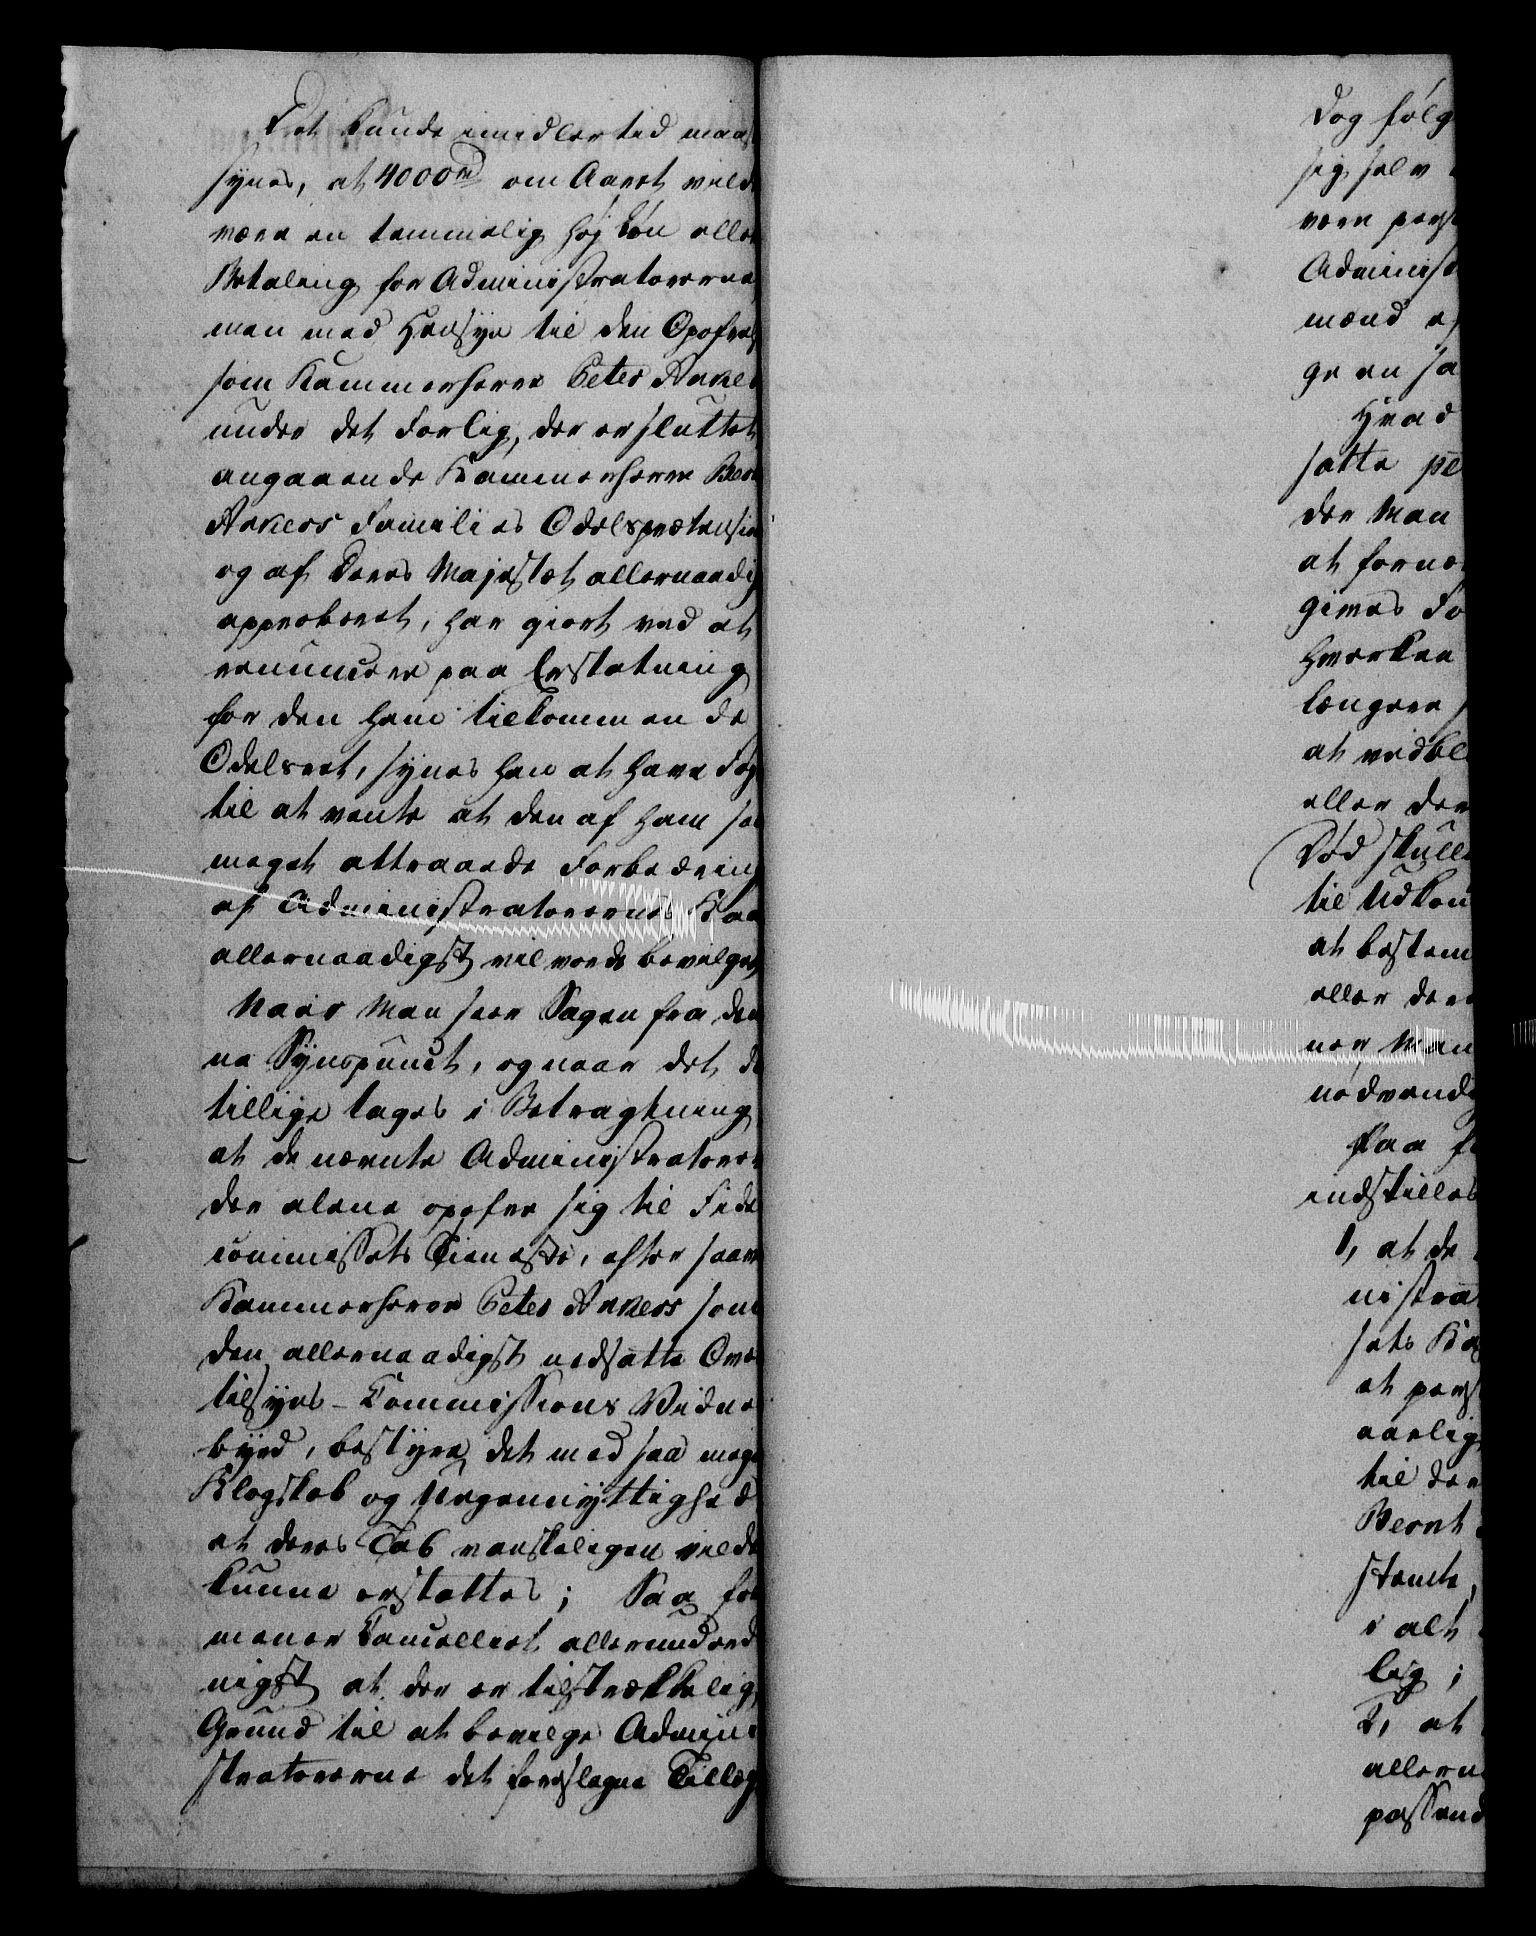 Det kunde imidlertid maas
synes, at 4000rd om Aaret vild
være en temmelig høj Løn elle
Betaling for Administratorerne
men med Hensyn til den Opofrels
som Kammerherre Peter Anke
under det Forlig, der er sluttet
angaaende Kammerherre Ber
Ankers Families Odelsprætensio
og af Deres Majestæt allernaadig
approberet, har giort ved at
renuncere paa Erstatning
for den ham tilkommende
Odelsret, synes han at have Føj
til at vente at den af ham saa
meget attraaede Forbedring
af Administratorernes Kaa
allernaadigst vil vorde bevilget,
Naar Man seer Sagen fra den
ne Synspunct, og naar det d
tillige tages i Betragtning
at de nævnte Administratorer
der alene opofre sig til Fide
commissets Tieneste, efter saave
Kammerherre Peter Ankers som
den allernaadigst nedsatte Over
tilsyns-Commissions Vidne
byrd, bestyre det med saa mege
Klogskab og Uegennyttighed
at deres Tab vanskeligen vilde
kunne erstattes; Saa for
mener Cancelliet allerunderd
nigst at der er tilstrækkelig
Grund til at bevilge Admini
stratorerne det foreslagne Tillæg
Dog følg
sig selv
være pers
Administ
mænd e
ge en sa
Hvad
satte pe
der Man
at fornæ
gives Fo
hverken
længere
at vedbl
eller der
Død skull
til Udkom
at bestem
eller der
ner Man
nødvend
Paa f
indstilles
1, at de
nistra
sets Ka
et pers
aarlig
til der
Bernt
stemte,
i alt
lig;
2, at
allern
passend